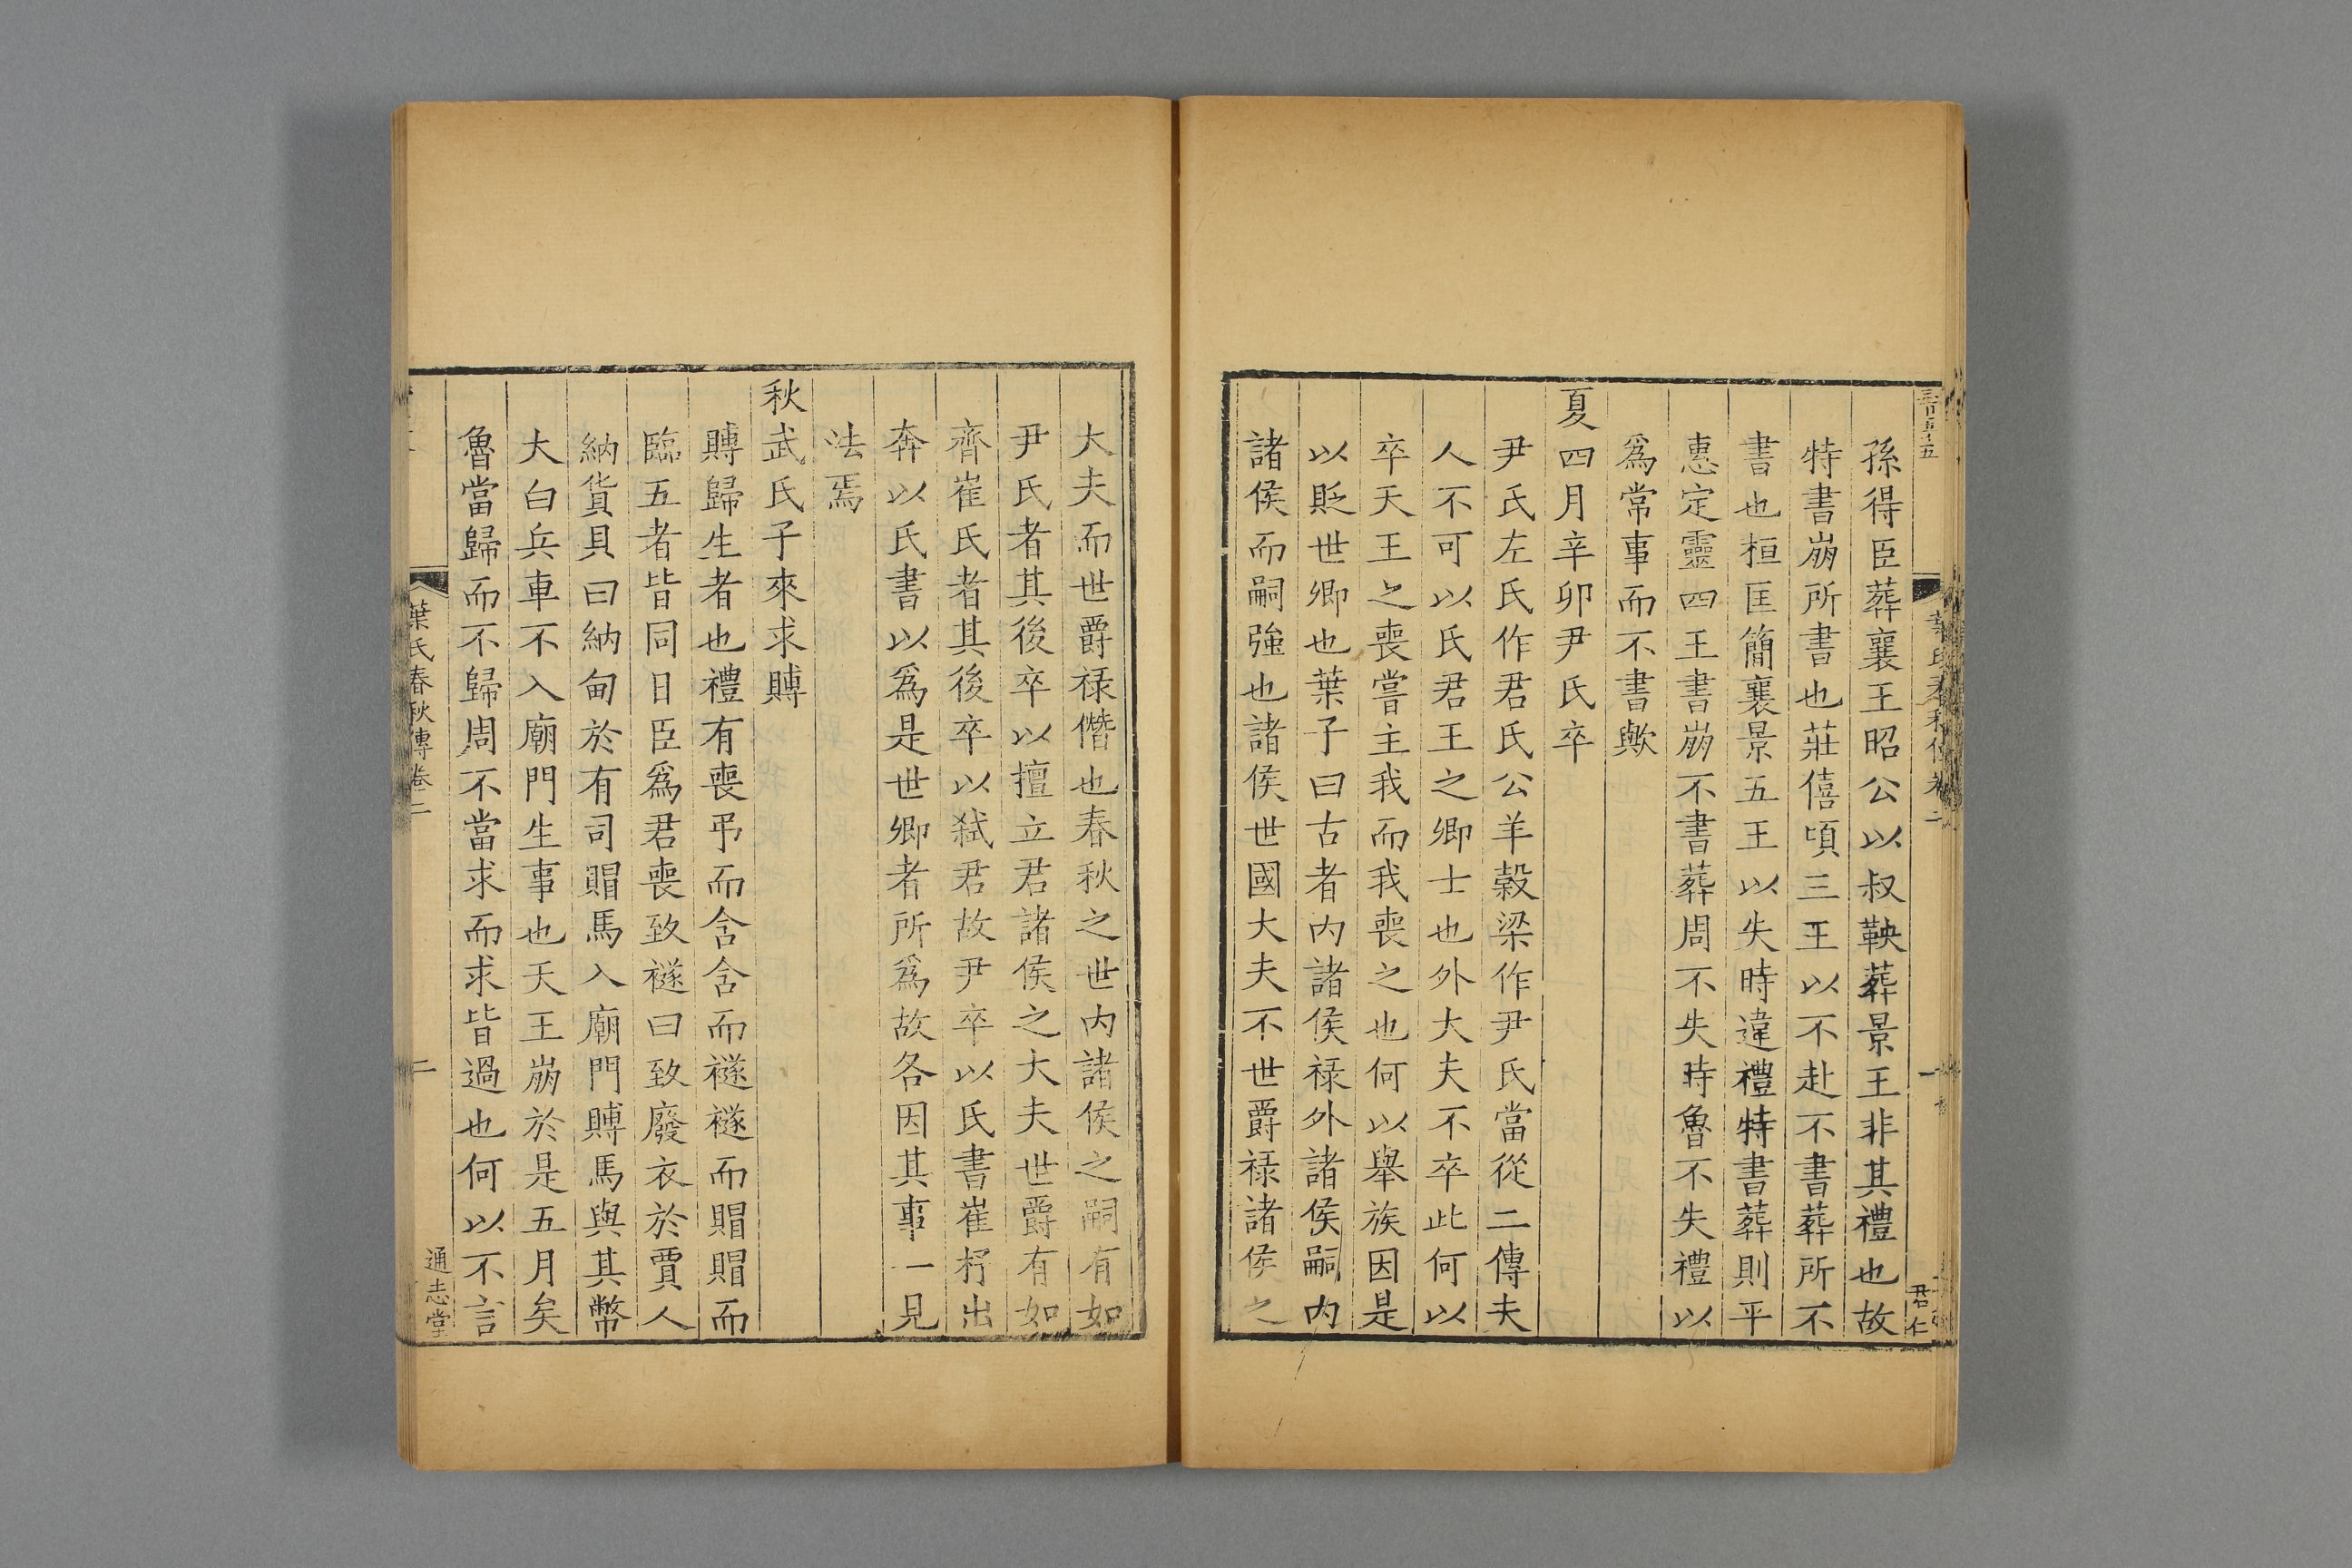 孫得臣葬襄王昭公以叔鞅葬景王非其禮也故
特書崩所書也莊僖頃三王以不赴不書葬所不
書也桓匡簡襄景五王以失時違禮特書葬則平
惠定靈四王書崩不書葬周不失時魯不失禮以
爲常事而不書歟
夏四月辛卯尹氏卒
尹氏左氏作君氏公羊穀梁作尹氏當從二傳夫
人不可以氏君王之卿士也外大夫不卒此何以
卒天王之喪嘗主我而我喪之也何以舉族因是
以貶世卿也葉子曰古者内諸侯祿外諸侯嗣内
諸侯而嗣強也諸侯世國大夫不世爵祿諸侯之
大夫而世爵祿僭也春秋之世内諸侯之嗣有如
尹氏者其後卒以擅立君諸侯之大夫世爵有如
齊崔氏者其後卒以弑君故尹卒以氏書崔杼出
奔以氏書以爲是世卿者所爲故各因其事一見
法焉
秋武氏子來求賻
賻歸生者也禮有喪弔而含含而襚襚而賵賵而
臨五者皆同日臣爲君喪致襚曰致廢衣於賈人
納貨貝曰納甸於有司賵馬入廟門賻馬與其幣
大白兵車不入廟門生事也天王崩於是五月矣
魯當歸而不歸周不當求而求皆過也何以不言
葉氏春秋傳卷二
二
通志堂